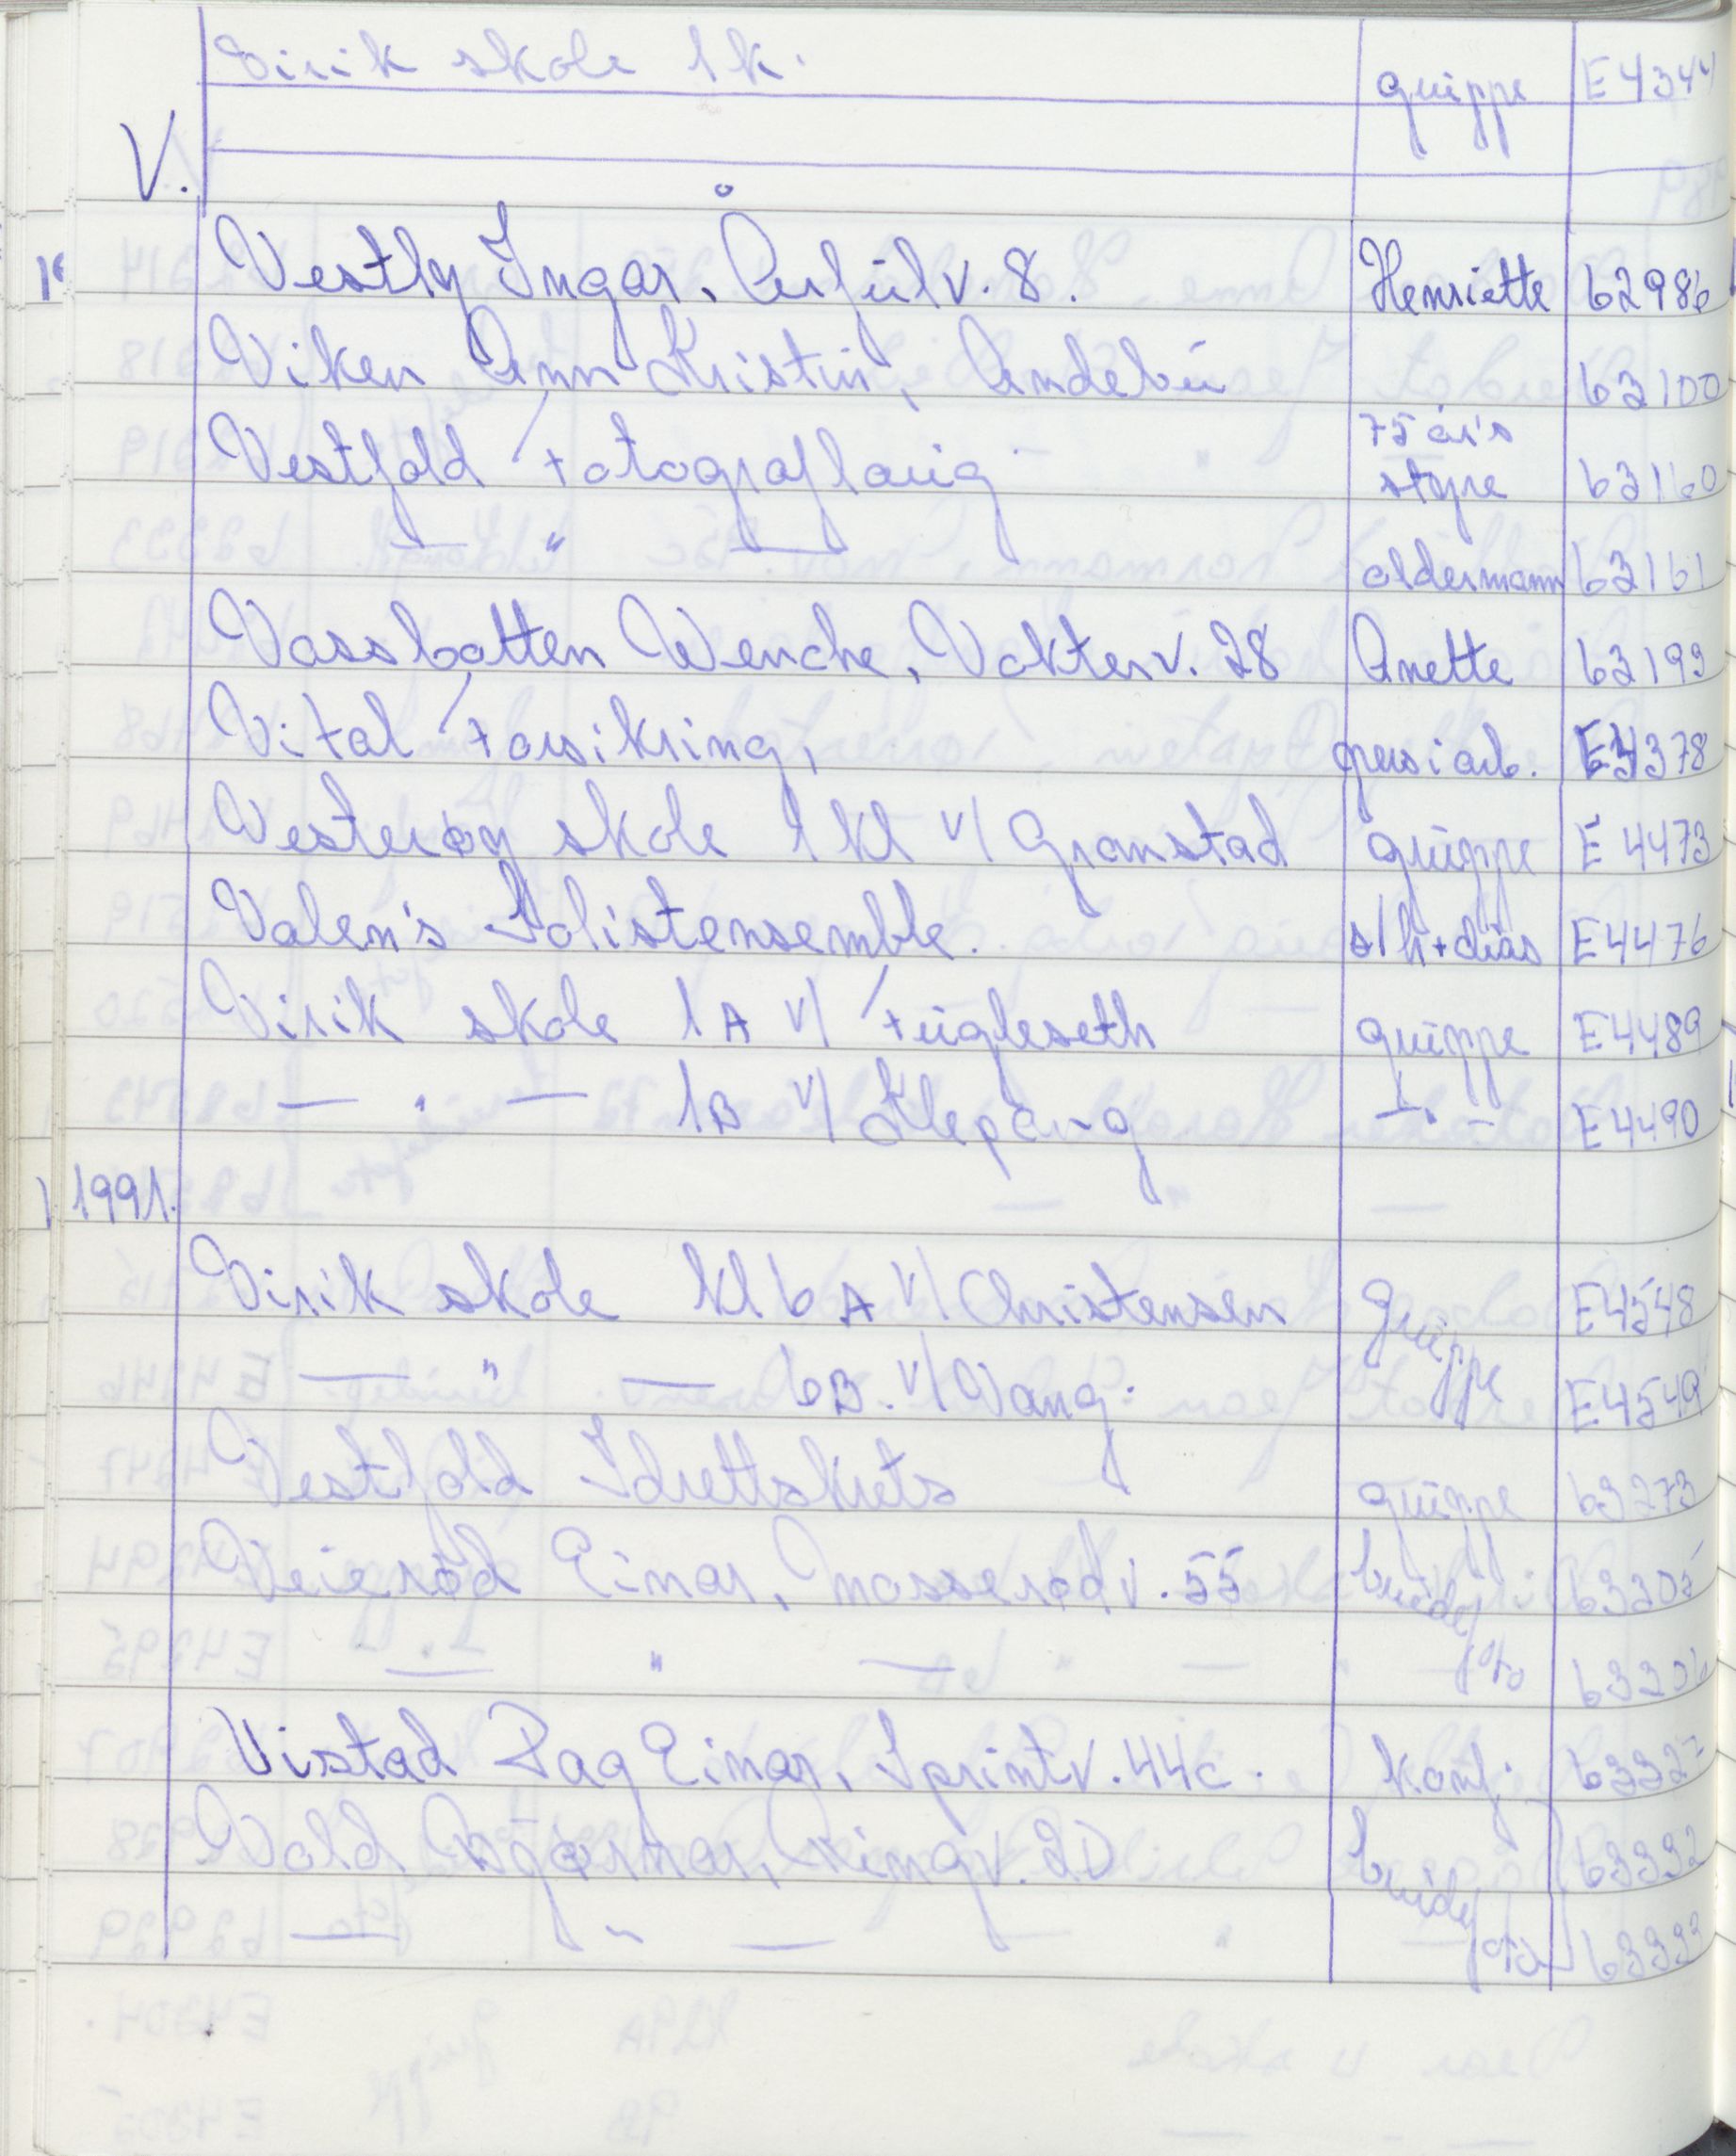 Virik skole 1k. gruppe E4344
V.
Vestly Ingar, Århulv. 8. Henriette 62986
Viken Ann Kristin, Andebu 63100
Vestfold Fotograflaug 75 år's styre 63160
— " — oldermann 63161
Vassbotten Wenche, Vokterv. 28 Anette 63193
Vital Forsikring, pers i arb. E4378
Vesterøy skole 1 kl v/ Granstad gruppe E4473
Valen's Solistensemble. s/h + dias E4476
Virik skole 1A v/ Fugleseth gruppe E4489
— " — 1B v/ Klepang — " — E4490
1991.
Virik skole kl 6A v/ Christensen gruppe E4548
— " — 6B. v/ Vang. E4549
Vestfold Idrettskrets gruppe 63273
Veierød Einar, Mosserødv. 55 brudef 63305
— " — foto 63306
Vistad Dag Einar, Sprintv. 44c. konf. 63327
Vold Bjørnar, Ringv. 2D brudef 63332
— " — foto 63333